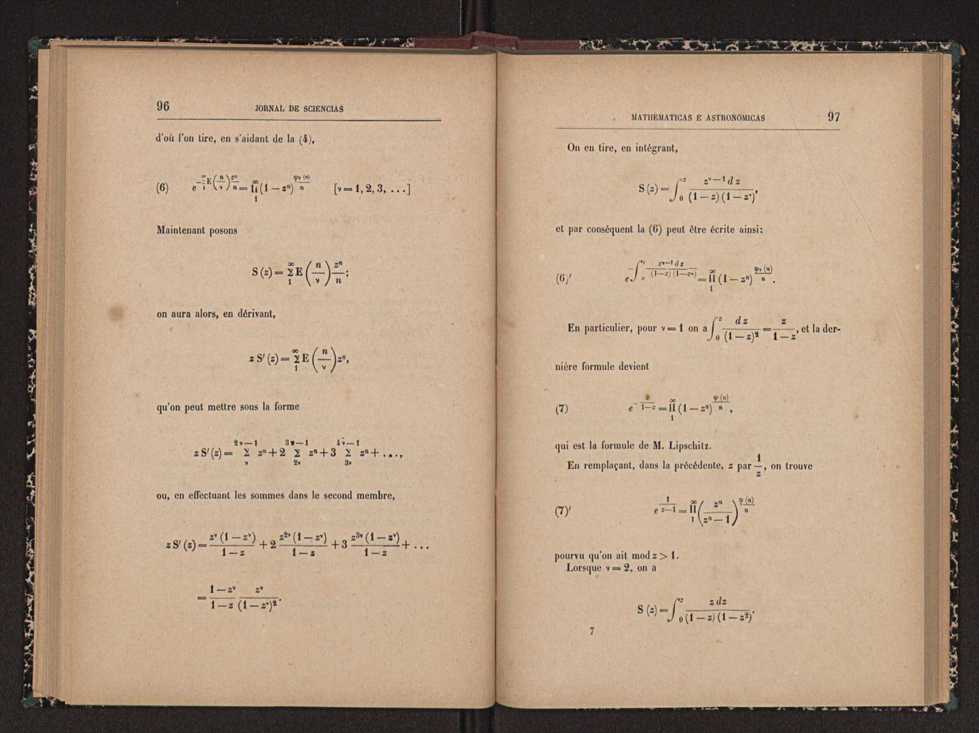 96 JORNAL DE SCIENCIAS
d'où l'on tire, en s'aidant de la (4),
(6) e^{-Σ_1^∞ E(n/ν) z^n/n} = Π_1^∞ (1 — z^n)^{φν(n)/n} [ν = 1, 2, 3, ...]
Maintenant posons
S (z) = Σ_1^∞ E (n/ν) z^n/n;
on aura alors, en dérivant,
z S′ (z) = Σ_1^∞ E (n/ν) z^n,
qu'on peut mettre sous la forme
z S′ (z) = Σ_ν^{2ν—1} z^n + 2 Σ_{2ν}^{3ν—1} z^n + 3 Σ_{3ν}^{4ν—1} z^n + ...,
ou, en effectuant les sommes dans le second membre,
z S′ (z) = z^ν (1 — z^ν)/(1 — z) + 2 z^{2ν} (1 — z^ν)/(1 — z) + 3 z^{3ν} (1 — z^ν)/(1 — z) + ...
= (1 — z^ν)/(1 — z) z^ν/(1 — z^ν)^2.
MATHEMATICAS E ASTRONOMICAS 97
On en tire, en intégrant,
S (z) = ∫_0^z z^{ν—1} d z/((1 — z) (1 — z^ν)),
et par conséquent la (6) peut être écrite ainsi:
(6)′ e^{-∫_0^z z^{ν—1} d z/((1—z) (1—z^ν))} = Π_1^∞ (1 — z^n)^{φν(n)/n}.
En particulier, pour ν = 1 on a ∫_0^z d z/(1 — z)^2 = z/(1 — z), et la der-
nière formule devient
(7) e^{- z/(1—z)} = Π_1^∞ (1 — z^n)^{φ(n)/n},
qui est la formule de M. Lipschitz.
En remplaçant, dans la précédente, z par 1/z, on trouve
(7)′ e^{1/(z—1)} = Π_1^∞ (z^n/(z^n — 1))^{φ(n)/n}
pourvu qu'on ait mod z > 1.
Lorsque ν = 2, on a
S (z) = ∫_0^z z dz/((1 — z) (1 — z^2)).
7